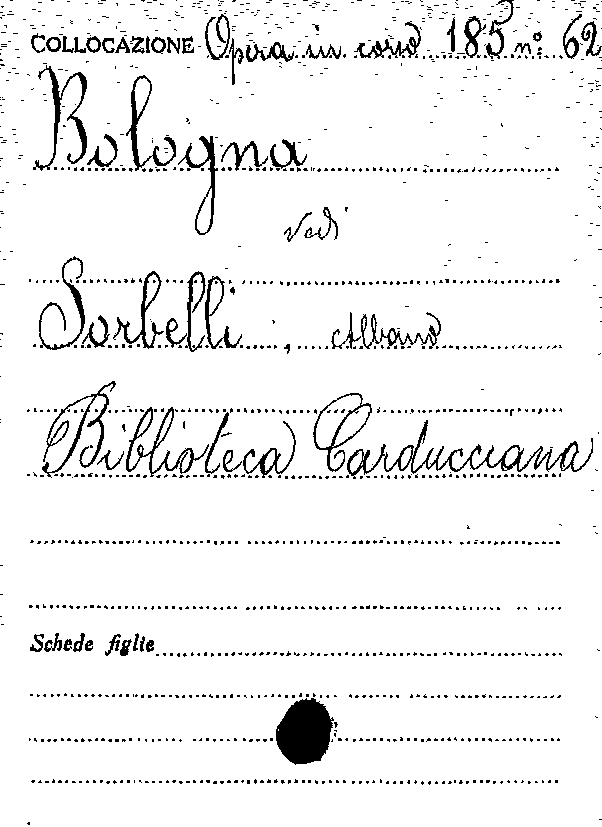 COLLOCAZIONE Opera in corso 185 n: 62
Bologna
Vedi
Sorbelli, Albano
Biblioteca Carducciana
Schede figlie